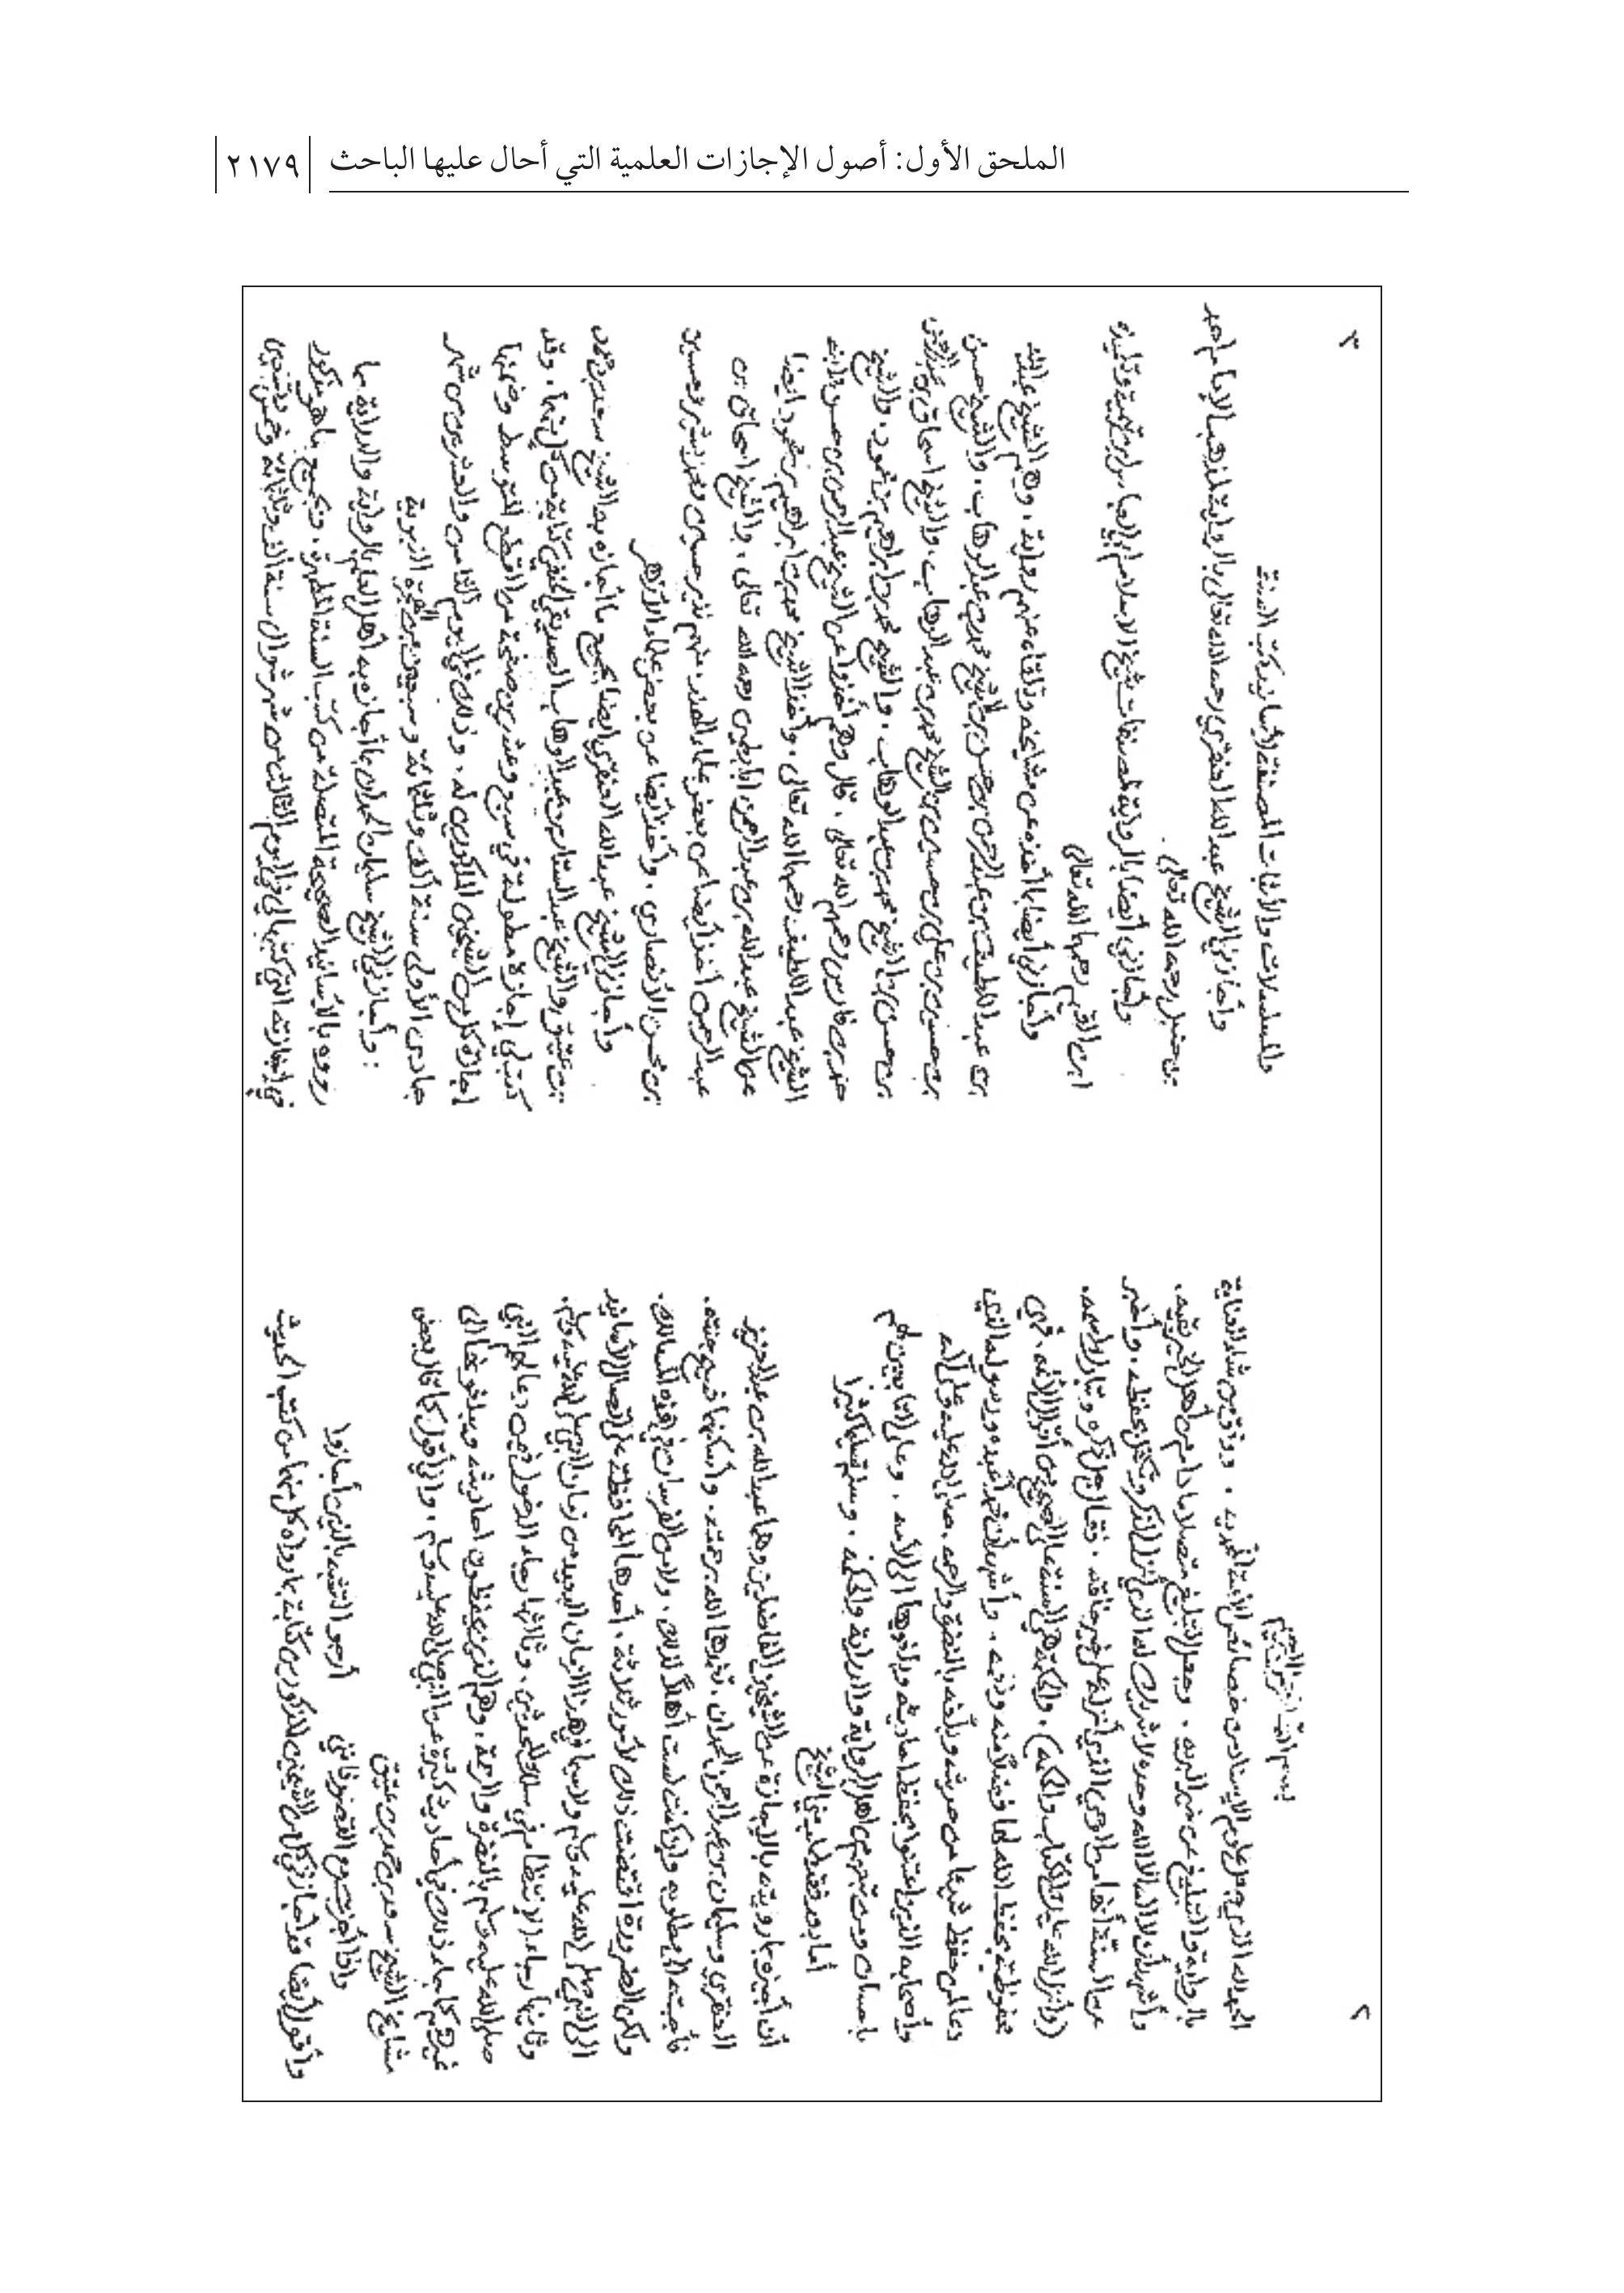 الملحق الأول: أصول الإجازات العلمية التي أحال عليها الباحث ٢١٧٩
٢
بسم الله الرحمن الرحيم
الحمد لله الذي جعل علوم الإسناد من خصائص الأمة المحمدية . ووفق من شاء لعناية
بالرواية والتبليغ عن خير البرية . وجعل التبليغ متصلا ما دام من أهل الخير بقيه.
وأشهد أن لا إله إلا الله وحده لا شريك له الذي أنزل الذكر وتكفل بحفظه . وأخبر
عن السنة أنها من الوحي الذي أنزله على خير خلقه . فقال جل ذكره وتبارك اسمه.
(وأنزل الله عليك الكتاب والحكمة) . والحكمة هي السنة على الصحيح من أقوال الأئمة . فهي
محفوظة بحفظ الله لها فضلا منه ومنه . وأشهد أن محمدا عبده ورسوله الذي
دعا لمن حفظ شيئا من حديثه وبلغه بالنضرة والرحمة . صلى الله عليه وعلى آله
وأصحابه الذين اعتنوا بحفظ أحاديثه وبلغوها إلى الأمة . وعلى التابعين لهم
بإحسان ومن تبعهم من أهل الرواية والدراية والحكمة . وسلم تسليما كثيرا
أما بعد فقد طلب مني الشيخ
أن أجيزه بما رويته بالإجازة عن الشيخين الفاضلين وهما عبد الله بن عبد العزيز
العنقري وسليمان بن عبد الرحمن الحمدان . تغمدهما الله برحمته . وأسكنهما فسيح جنته.
فأجبته إلى مطلوبه وإن كنت لست أهلا لذلك . ولا من الفرسان في هذه المسالك.
ولكن الضرورة اقتضت ذلك لأمور ثلاثة . أحدها المحافظة على اتصال الأسانيد
إلى النبي صلى الله عليه وسلم ولا سيما في هذا الزمان البعيد من زمان النبي صلى الله عليه وسلم.
وثانيها رجاء الانتظام في سلك المحدثين . وثالثها رجاء الدخول فيمن دعا لهم النبي
صلى الله عليه وسلم بالنضرة والرحمة . وهم الذين يحفظون أحاديثه ويبلغونها إلى
غيرهم كما جاء ذلك في أحاديث كثيرة عن النبي صلى الله عليه وسلم . وإني أقول كما قال بعض
مشايخ الشيخ سعد بن حمد بن عتيق
وإذا أجزت مع القصور فإنني أرجو التشبه بالذين أجازوا
وأقول أيضا قد أجازني كل من الشيخين المذكورين كتابة بما رواه كل منهما من كتب الحديث
٣
والمسلسلات والأثبات المصنفة في أسانيد كتب السنة
وأجازني الشيخ عبد الله العنقري رحمه الله تعالى بالرواية لمذهب الإمام أحمد
بن حنبل رحمه الله تعالى .
وأجازني أيضا بالرواية لمصنفات شيخ الإسلام أبي العباس ابن تيمية وتلميذه
ابن القيم رحمهما الله تعالى
وأجازني أيضا بما أخذه عن مشايخه وتلقاه عنهم رواية . وهم الشيخ عبد الله
بن عبد اللطيف بن عبد الرحمن بن حسن بن الشيخ محمد بن عبد الوهاب . والشيخ حسن
بن حسين بن علي بن حسين بن الشيخ محمد بن عبد الوهاب . والشيخ إسحاق بن عبد الرحمن
بن حسن بن الشيخ محمد بن عبد الوهاب . والشيخ محمد بن إبراهيم بن محمود . والشيخ
حمد بن فارس رحمهم الله تعالى . قال وهم أخذوا عن الشيخ عبد الرحمن بن حسن وابنه
الشيخ عبد اللطيف رحمهما الله تعالى . وأخذ الشيخ محمد بن إبراهيم بن محمود أيضا
عن الشيخ عبد الله بن عبد الرحمن أبابطين رحمه الله تعالى . والشيخ إسحاق بن
عبد الرحمن أخذ أيضا عن بعض علماء الهند . منهم نذير حسين وعن بشير حسين
بن محسن الأنصاري . وأخذ أيضا عن بعض علماء الأزهر
وأجازني الشيخ عبد الله العنقري أيضا بجميع ما أجازه به الشيخ سعد بن حمد
بن عتيق والشيخ عبد الستار بن عبد الوهاب الصديقي الحنفي كتابة من كل منهما . وقد
كتب لي إجازة مطولة في سبع وعشرين صفحة من القطع المتوسط وضمنها
إجازة كل من الشيخين المذكورين له . وذلك في اليوم الثامن والعشرين من شهر
جمادى الأولى سنة ألف وثلثمائة وسبعين من الهجرة النبوية
وأجازني الشيخ سليمان الحمدان بما أجازه به أهل العلم بالرواية والدراية مما :
رووه بالأسانيد الصحيحة المتصلة من كتب السنة المطهرة . وبجميع ما هو مذكور
في إجازته التي كتبها لي في اليوم الثالث من شهر شوال سنة ألف وثلثمائة